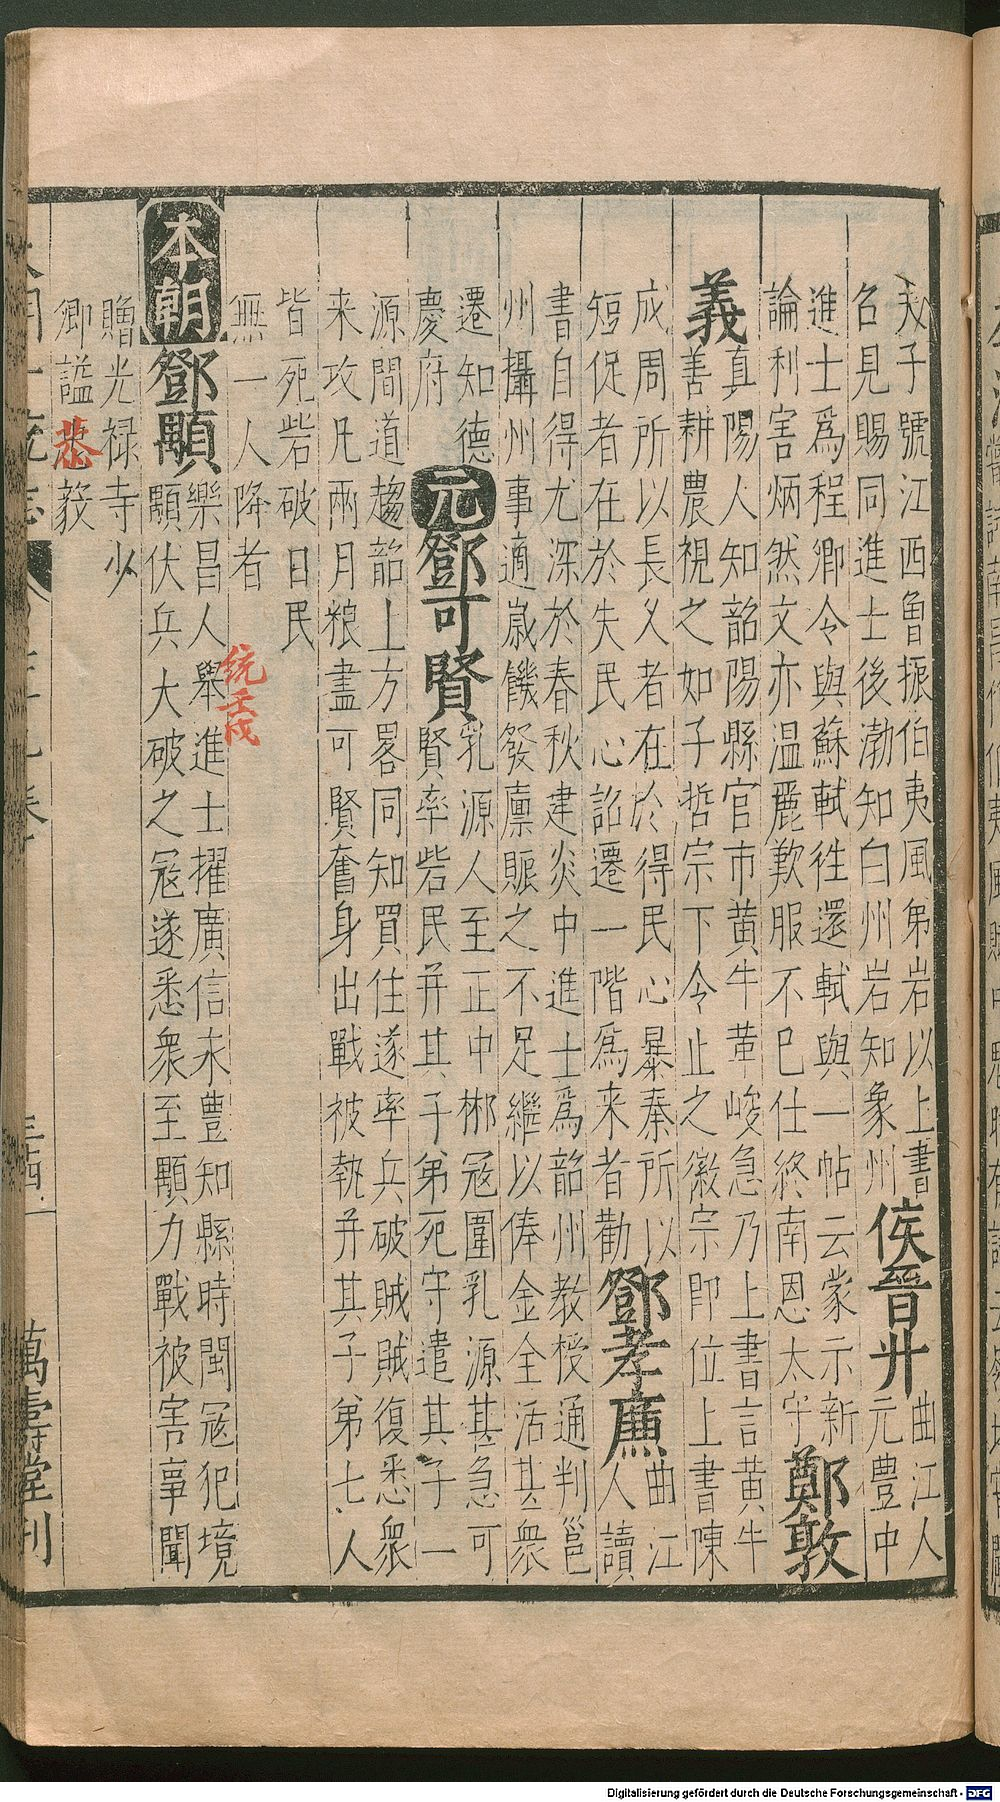 天子號江西魯振伯夷風弟岩以上書
召見賜同進士後渤知白州岩知象州
侯晉升
曲江人
元豊中
進士爲程鄉令與蘇軾徃還軾與一帖云蒙示新
論利害炳然文亦温麗歎服不已仕終南恩太守
鄭敦
義
真陽人知韶陽縣官市黄牛革峻急乃上書言黄牛
善耕農視之如子哲宗下令止之徽宗即位上書陳
成周所以長乆者在於得民心暴秦所以
短促者在於失民心詔遷一階爲来者勸
鄧孝廉
曲江
人讀
書自得尤深於春秋建炎中進士爲韶州教授通判邕
州攝州事適歲饑發廩賑之不足繼以俸金全活甚衆
遷知德
慶府
元
鄧可賢
乳源人至正中郴冦圍乳源甚急可
賢率砦民并其子弟死守遣其子一
源間道趨韶上方畧同知買住遂率兵破賊賊復悉衆
来攻凡兩月粮盡可賢奮身出戰被執并其子弟七人
皆死砦破日民
無一人降者
本朝
鄧顒
樂昌人舉進士擢廣信永豊知縣時閩冦犯境
顒伏兵大破之冦遂悉衆至顒力戰被害事聞
統壬戌
贈光禄寺少
卿謚恭毅
萬壽堂刊
Digitalisierung gefördert durch die Deutsche Forschungsgemeinschaft - DFG